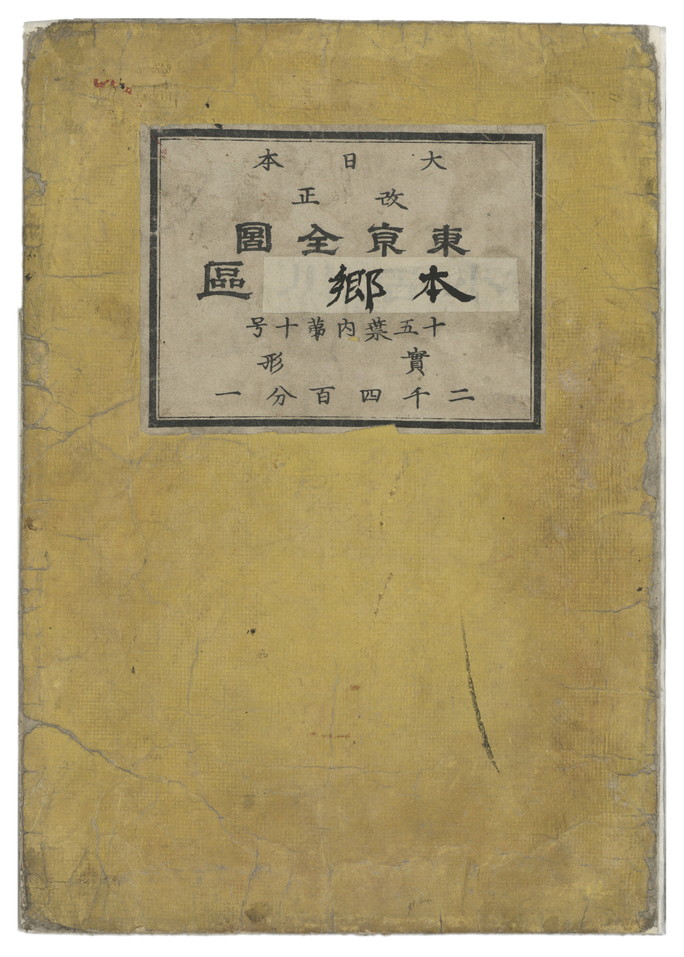 大日本
改正
東亰全圖
本郷區
十五葉内第十号
實形
二千四百分一